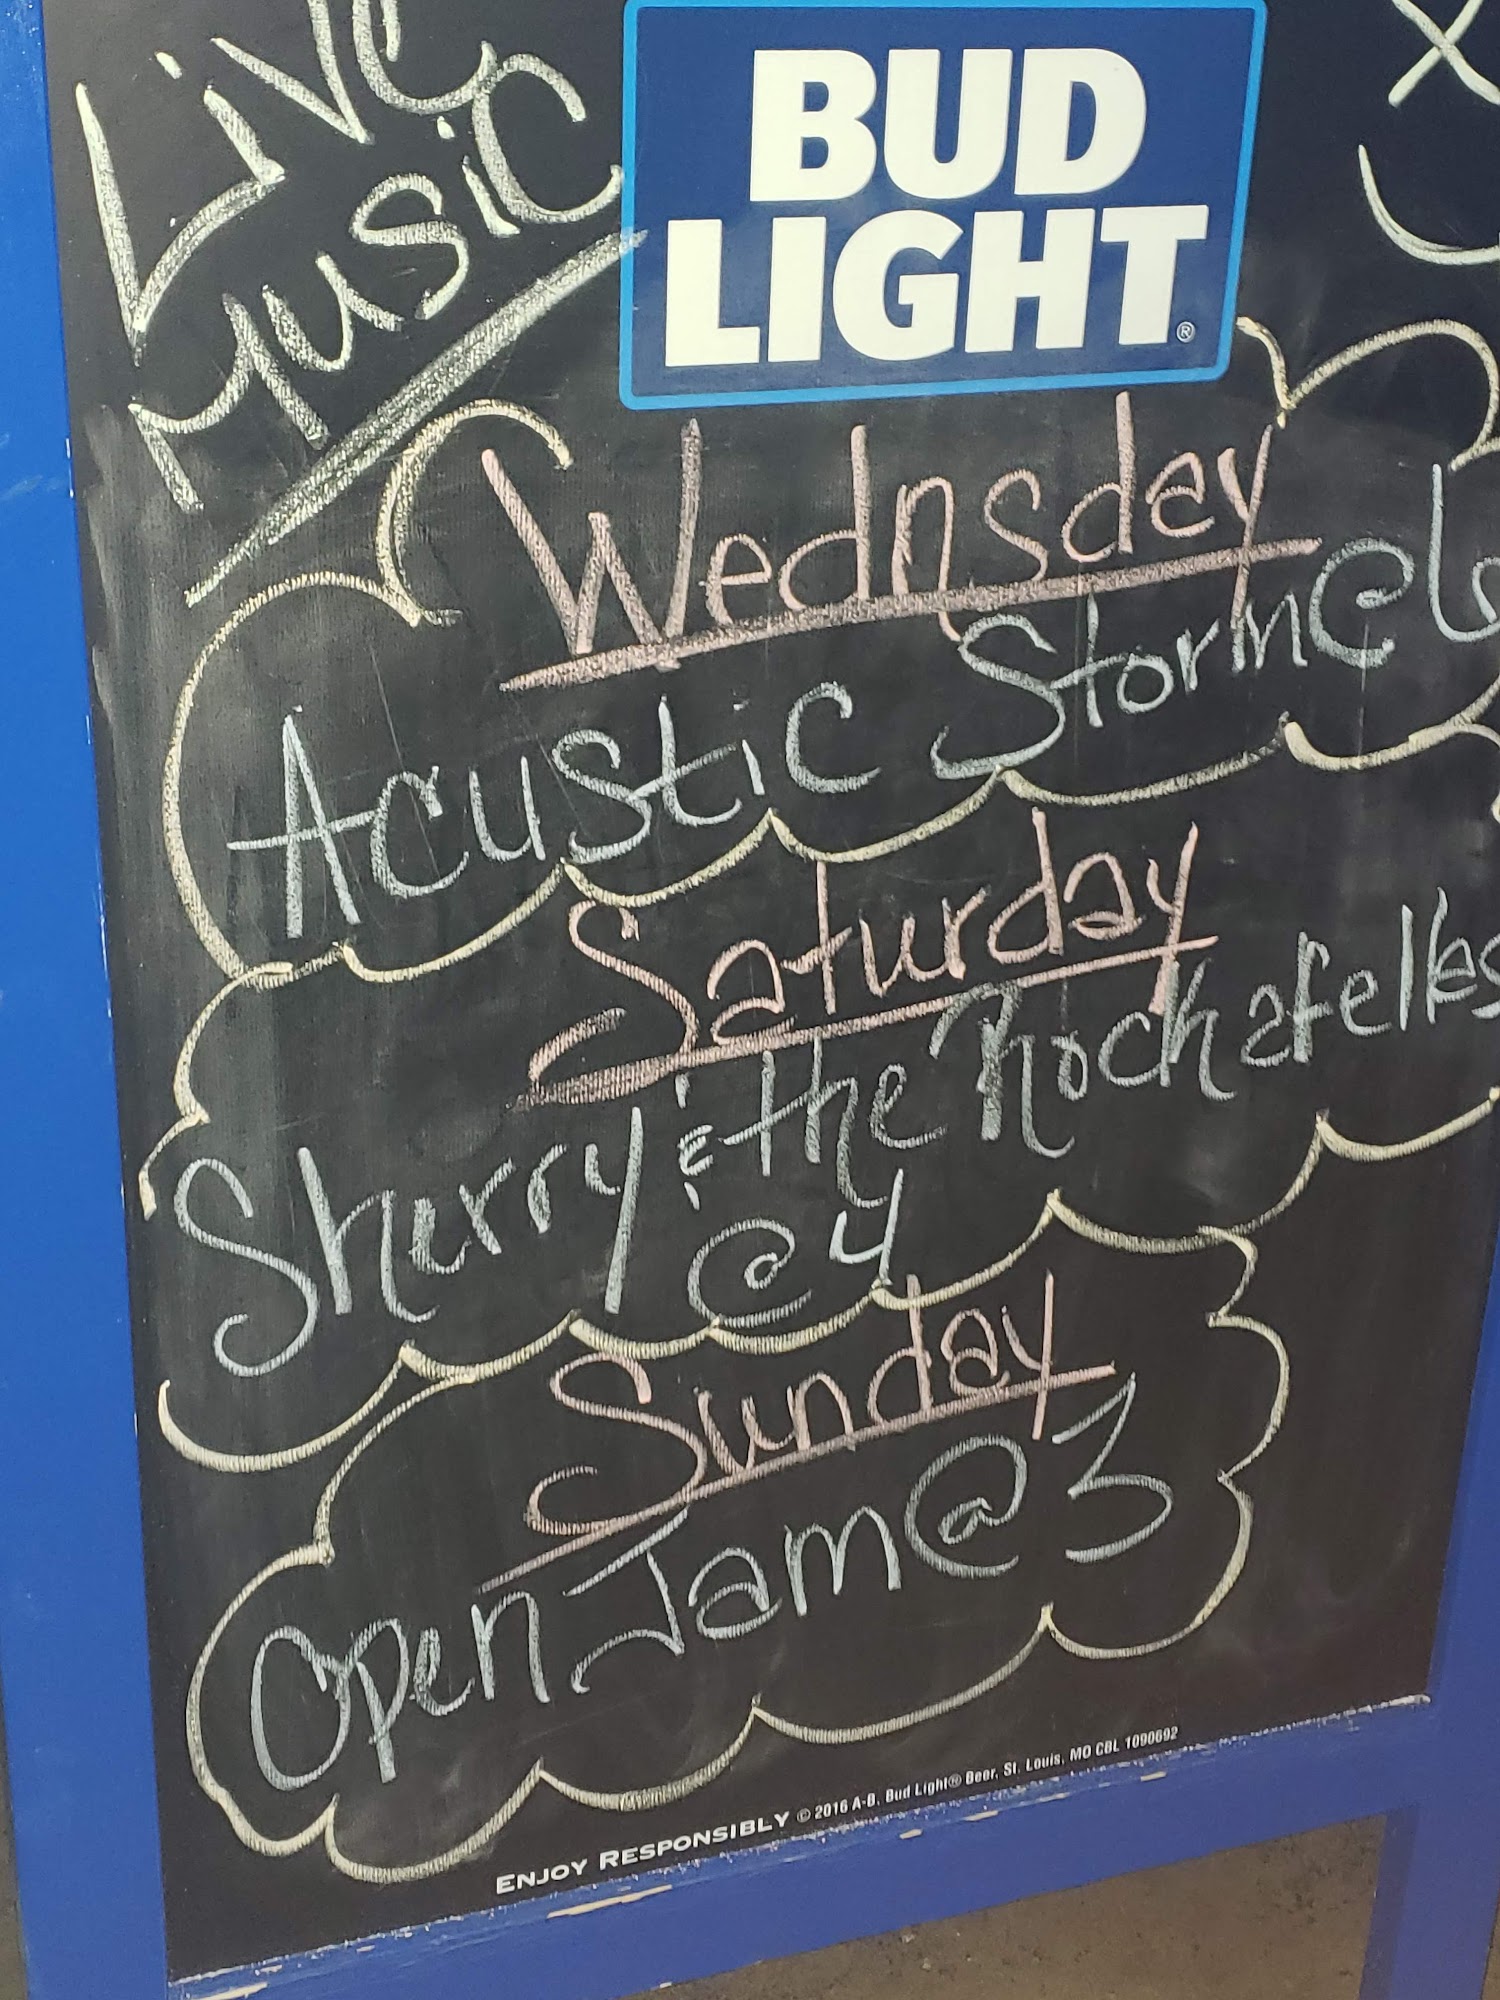 Live
Music
BUD
LIGHT®
Wednsday
Acustic Storm @ 6
Saturday
Sherry & the Rockafellas
@ 4
Sunday
Open Jam @ 3
ENJOY RESPONSIBLY © 2016 A-B. Bud Light® Beer, St. Louis, MO CBL 1090692